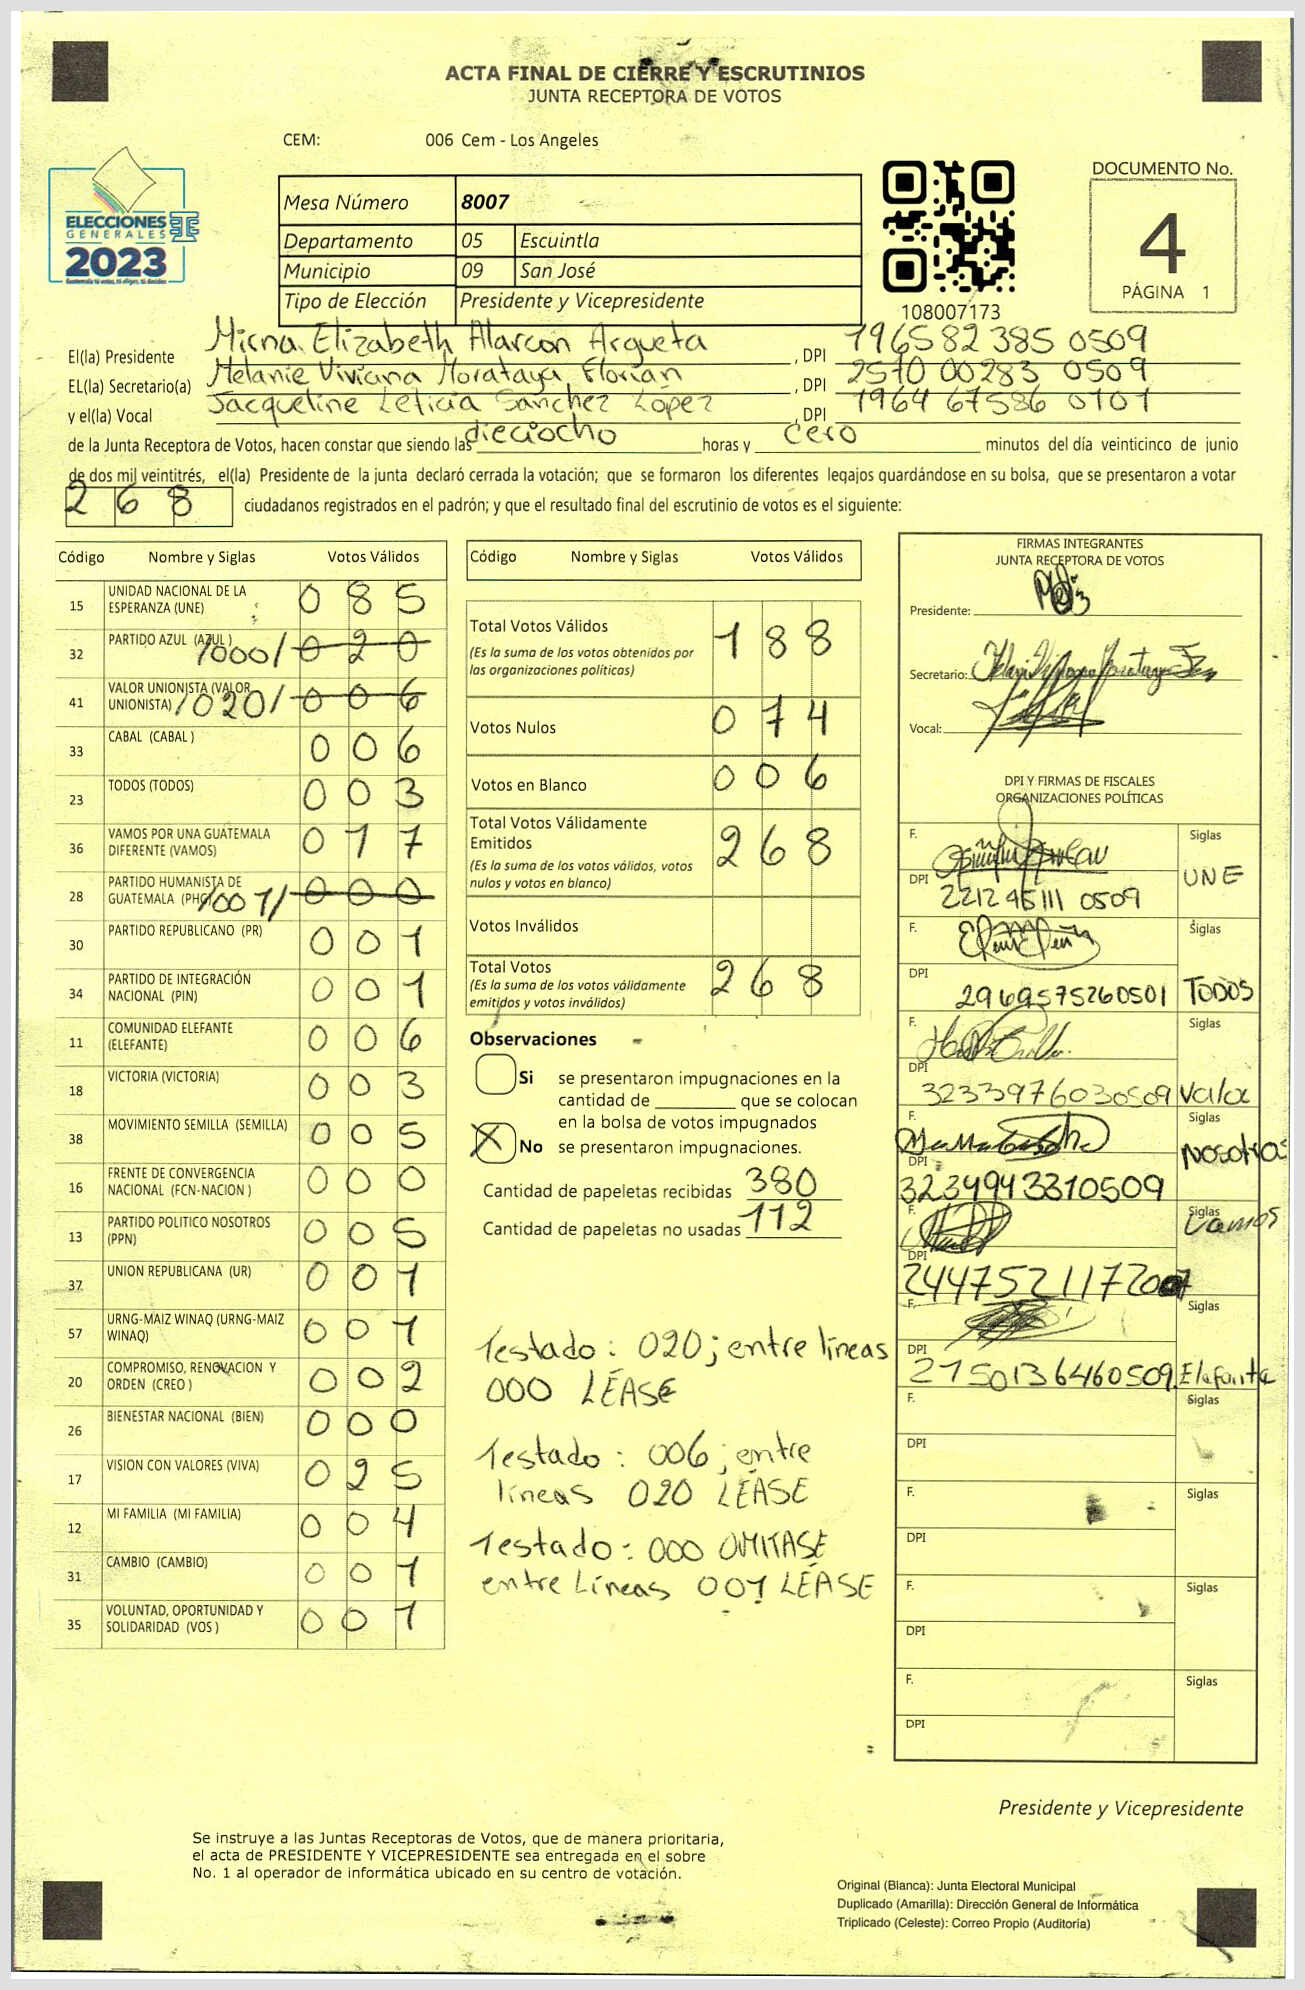 ACTA FINAL DE CIERRE Y ESCRUTINIOS
JUNTA RECEPTORA DE VOTOS
CEM: 006 Cem - Los Angeles
ELECCIONES
GENERALES
2023
Guatemala tú votas, tú eliges, tú decides
Mesa Número 8007
Departamento 05 Escuintla
Municipio 09 San José
Tipo de Elección Presidente y Vicepresidente
108007173
DOCUMENTO No.
4
PÁGINA 1
El(la) Presidente Mirna Elizabeth Alarcon Argueta , DPI 1965 82 385 0509
EL(la) Secretario(a) Melanie Viviana Morataya Florian , DPI 2570 00283 0509
y el(la) Vocal Jacqueline Leticia Sanchez López , DPI 1964 67586 0101
de la Junta Receptora de Votos, hacen constar que siendo las dieciocho horas y cero minutos del día veinticinco de junio
de dos mil veintitrés, el(la) Presidente de la junta declaró cerrada la votación; que se formaron los diferentes legajos guardándose en su bolsa, que se presentaron a votar
268 ciudadanos registrados en el padrón; y que el resultado final del escrutinio de votos es el siguiente:
Código Nombre y Siglas Votos Válidos
15 UNIDAD NACIONAL DE LA ESPERANZA (UNE) 085
32 PARTIDO AZUL (AZUL) /000/ 020
41 VALOR UNIONISTA (VALOR UNIONISTA) /020/ 006
33 CABAL (CABAL ) 006
23 TODOS (TODOS) 003
36 VAMOS POR UNA GUATEMALA DIFERENTE (VAMOS) 017
28 PARTIDO HUMANISTA DE GUATEMALA (PHG) /001/ 000
30 PARTIDO REPUBLICANO (PR) 001
34 PARTIDO DE INTEGRACIÓN NACIONAL (PIN) 001
11 COMUNIDAD ELEFANTE (ELEFANTE) 006
18 VICTORIA (VICTORIA) 003
38 MOVIMIENTO SEMILLA (SEMILLA) 005
16 FRENTE DE CONVERGENCIA NACIONAL (FCN-NACION ) 000
13 PARTIDO POLITICO NOSOTROS (PPN) 005
37 UNION REPUBLICANA (UR) 001
57 URNG-MAIZ WINAQ (URNG-MAIZ WINAQ) 001
20 COMPROMISO, RENOVACION Y ORDEN (CREO ) 002
26 BIENESTAR NACIONAL (BIEN) 000
17 VISION CON VALORES (VIVA) 025
12 MI FAMILIA (MI FAMILIA) 004
31 CAMBIO (CAMBIO) 001
35 VOLUNTAD, OPORTUNIDAD Y SOLIDARIDAD (VOS ) 001
Código Nombre y Siglas Votos Válidos
Total Votos Válidos 188
(Es la suma de los votos obtenidos por
las organizaciones políticas)
Votos Nulos 074
Votos en Blanco 006
Total Votos Válidamente
Emitidos 268
(Es la suma de los votos válidos, votos
nulos y votos en blanco)
Votos Inválidos
Total Votos 268
(Es la suma de los votos válidamente
emitidos y votos inválidos)
Observaciones
Si se presentaron impugnaciones en la
cantidad de ________ que se colocan
en la bolsa de votos impugnados
X No se presentaron impugnaciones.
Cantidad de papeletas recibidas 380
Cantidad de papeletas no usadas 112
Testado: 020; entre líneas
000 LÉASE
Testado: 006; entre
líneas 020 LÉASE
Testado: 000 OMITASE
entre Líneas 001 LÉASE
FIRMAS INTEGRANTES
JUNTA RECEPTORA DE VOTOS
Presidente:
Secretario:
Vocal:
DPI Y FIRMAS DE FISCALES
ORGANIZACIONES POLÍTICAS
F. Siglas
DPI 2212 45111 0509 UNE
F. Siglas
DPI 2969575260501 TODOS
F. Siglas
DPI 3233976030509 Valor
F. Siglas
DPI 3234943310509 Nosotros
F. Siglas
DPI Vamos
F. Siglas
DPI 2750136460509 Elefante
F. Siglas
DPI
F. Siglas
DPI
F. Siglas
DPI
F. Siglas
DPI
Presidente y Vicepresidente
Se instruye a las Juntas Receptoras de Votos, que de manera prioritaria,
el acta de PRESIDENTE Y VICEPRESIDENTE sea entregada en el sobre
No. 1 al operador de informática ubicado en su centro de votación.
Original (Blanca): Junta Electoral Municipal
Duplicado (Amarilla): Dirección General de Informática
Triplicado (Celeste): Correo Propio (Auditoría)